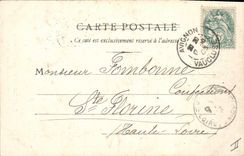 CARTE POSTALE
Ce côté est exclusivement réservé à l'adresse
AVIGNON
VAUCLUSE
Monsieur Fombonne
Confections
Ste Florine
Haute-Loire